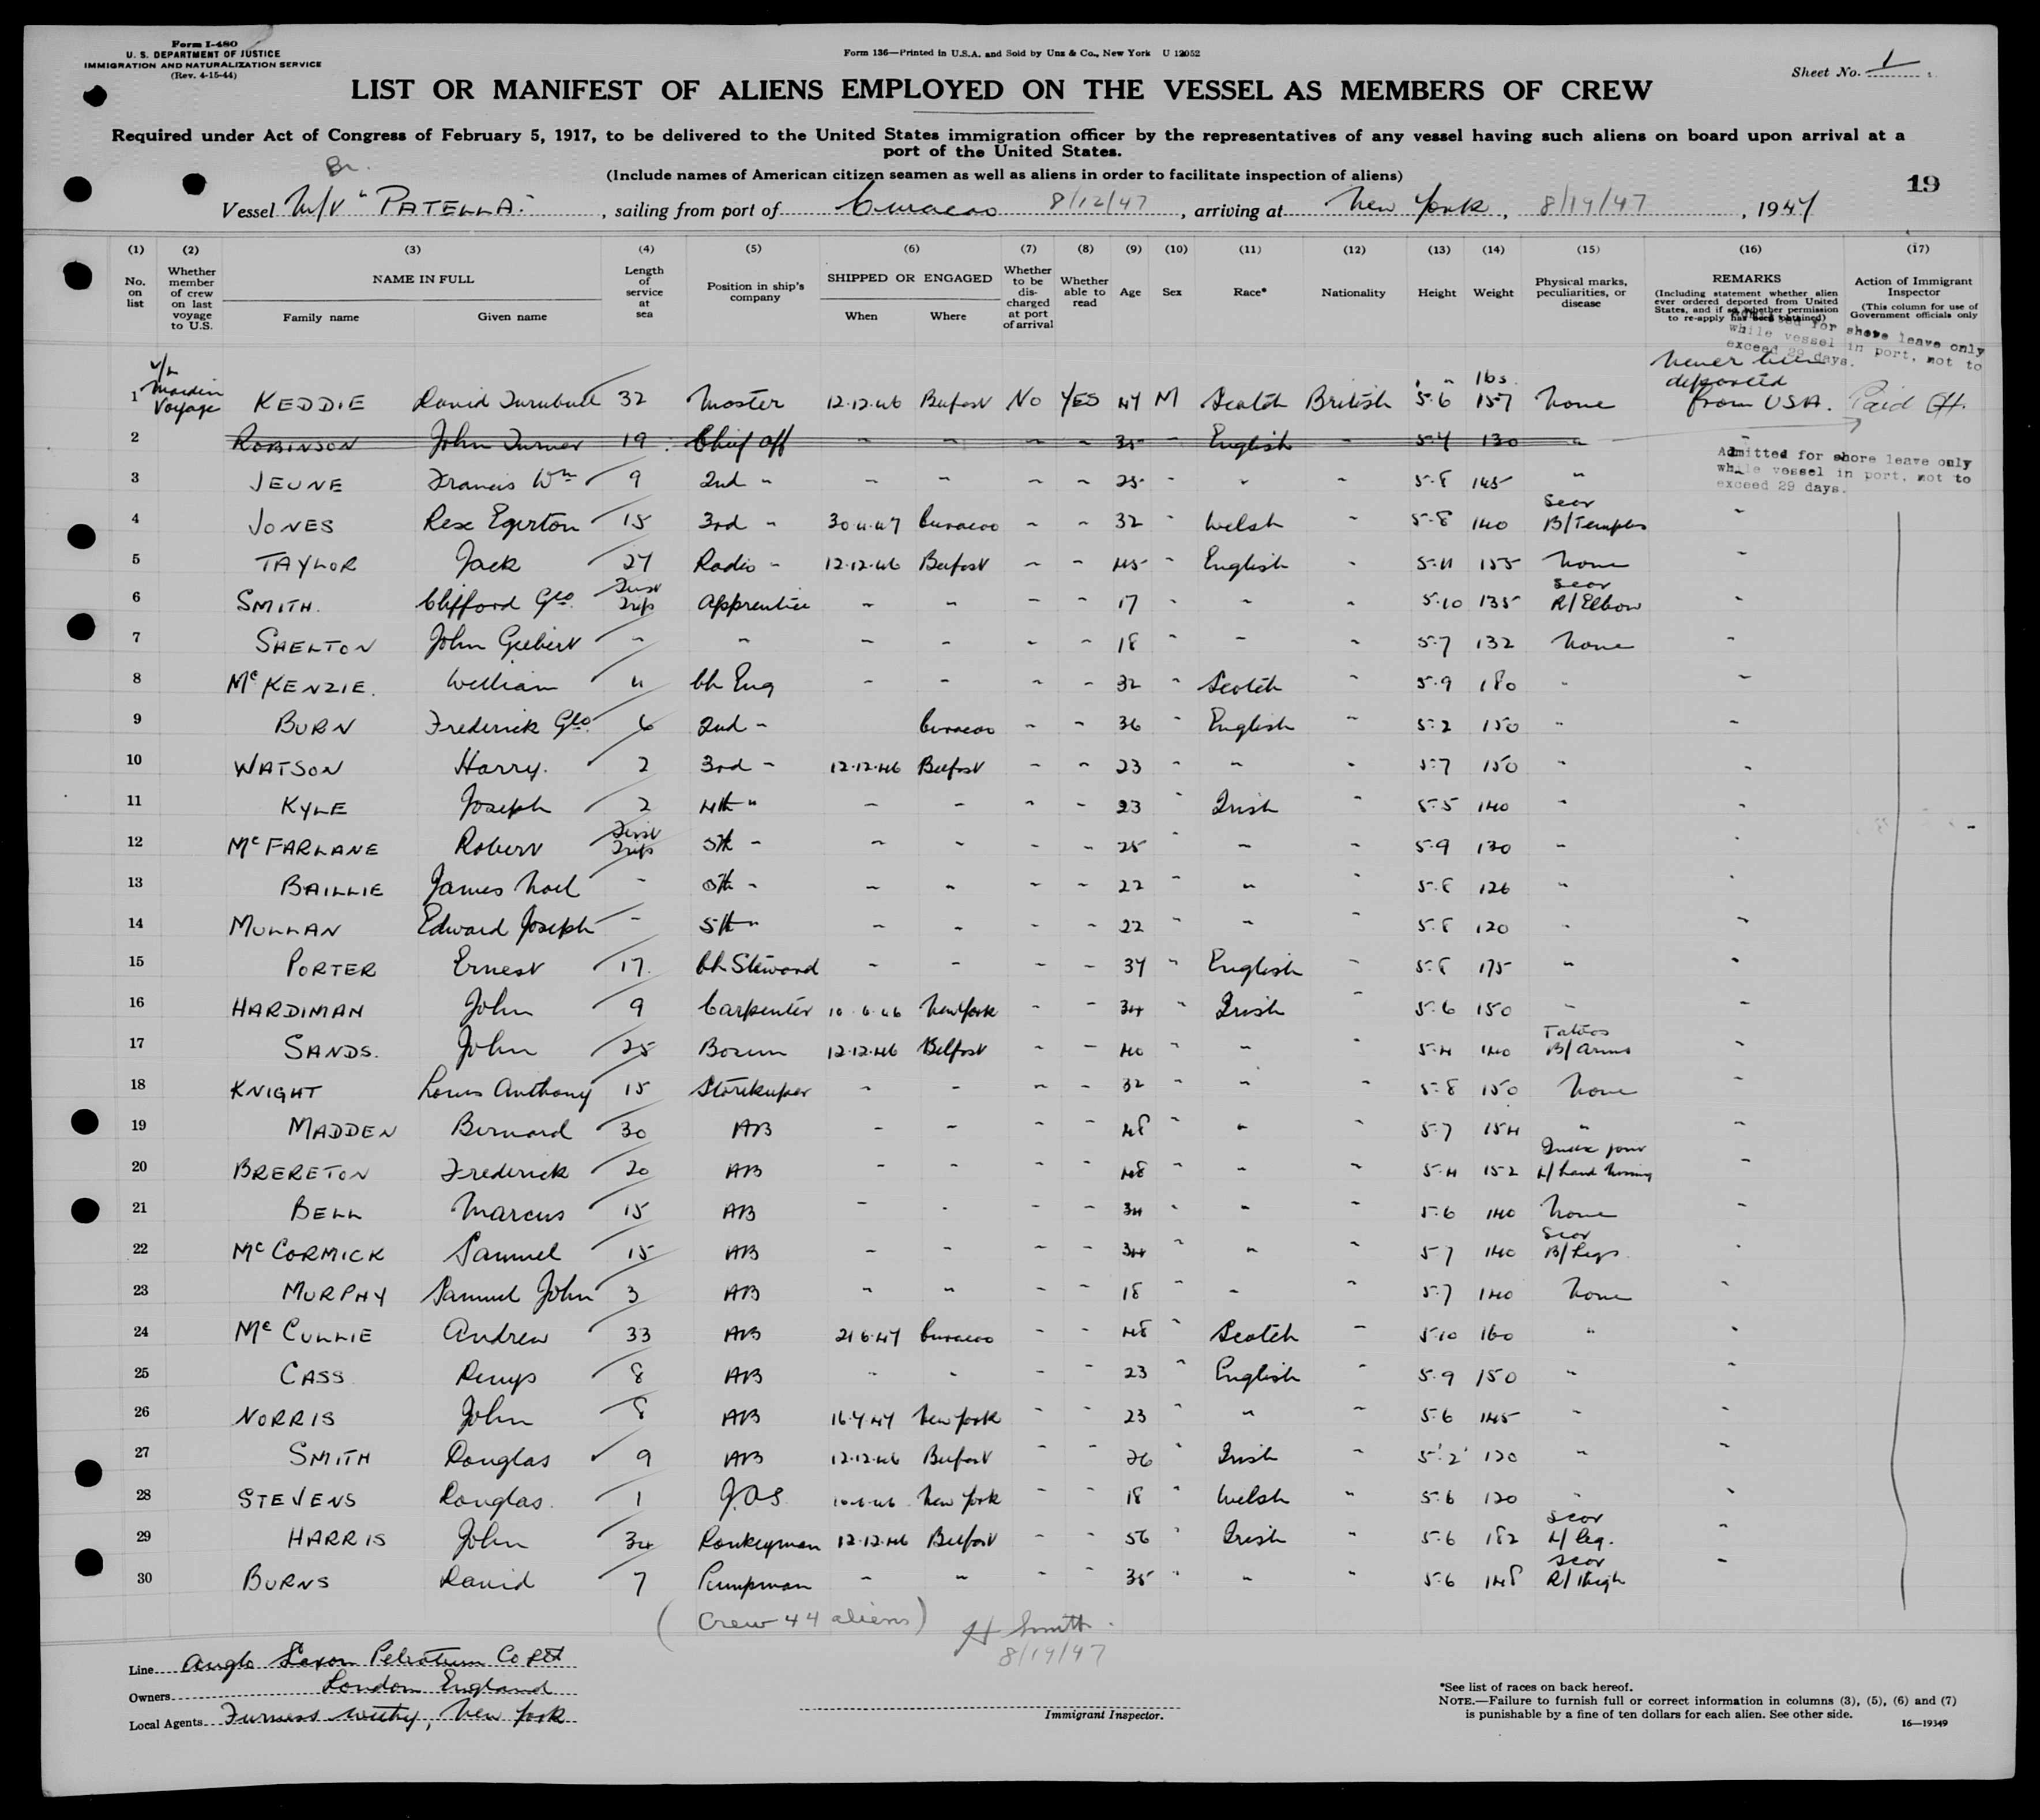 Form I-480
U. S. DEPARTMENT OF JUSTICE
IMMIGRATION AND NATURALIZATION SERVICE
(Rev. 4-15-44)
Form 136—Printed in U.S.A. and Sold by Unz & Co., New York U 12052
Sheet No. 1
LIST OR MANIFEST OF ALIENS EMPLOYED ON THE VESSEL AS MEMBERS OF CREW
Required under Act of Congress of February 5, 1917, to be delivered to the United States immigration officer by the representatives of any vessel having such aliens on board upon arrival at a
port of the United States.
Br.
(Include names of American citizen seamen as well as aliens in order to facilitate inspection of aliens)
19
Vessel M/V "PATELLA", sailing from port of Curacao 8/12/47, arriving at New York, 8/19/47, 1947
(1) (2) (3) (4) (5) (6) (7) (8) (9) (10) (11) (12) (13) (14) (15) (16) (17)
No. on list
Whether member of crew on last voyage to U.S.
NAME IN FULL
Family name
Given name
Length of service at sea
Position in ship's company
SHIPPED OR ENGAGED
When
Where
Whether to be discharged at port of arrival
Whether able to read
Age
Sex
Race*
Nationality
Height
Weight
Physical marks, peculiarities, or disease
REMARKS
(Including statement whether alien ever ordered deported from United States, and if so, whether permission to re-apply has been obtained)
Action of Immigrant Inspector
(This column for use of Government officials only
Admitted for shore leave only
while vessel in port, not to
exceed 29 days.
1 Maiden Voyage KEDDIE David Turnbull 32 Master 12.12.46 Belfast No YES 47 M Scotch British 5.6 157 lbs. None Never been deported from USA. Paid Off.
2 ROBINSON John Turner 19 Chief Off " " 35 " English " 5.4 130 "
Admitted for shore leave only
while vessel in port, not to
exceed 29 days.
3 JEUNE Francis Wm 9 2nd " " " " " 25 " " " 5.8 145 "
4 JONES Rex Egerton 15 3rd " 30.4.47 Curacao " " 32 " Welsh " 5.8 140 Scar B/Temples "
5 TAYLOR Jack 27 Radio " 12.12.46 Belfast " " 45 " English " 5.11 155 None "
6 SMITH. Clifford Geo. First Trip Apprentice " " " " 17 " " " 5.10 135 Scar R/Elbow "
7 SHELTON John Gilbert " " " " " " 18 " " " 5.7 132 None "
8 McKENZIE. William 11 Ch Eng " " " " 32 " Scotch " 5.9 180 " "
9 BURN Frederick Geo. 6 2nd " Curacao " " 36 " English " 5.2 150 " "
10 WATSON Harry. 2 3rd " 12.12.46 Belfast " " 23 " " " 5.7 150 " "
11 KYLE Joseph 2 4th " " " " " 23 " Irish " 5.5 140 " "
12 McFARLANE Robert First Trip 5th " " " " " 25 " " " 5.9 130 " "
13 BAILLIE James Noel " 5th " " " " " 22 " " " 5.8 126 " "
14 MULLAN Edward Joseph " 5th " " " " " 22 " " " 5.8 120 " "
15 PORTER Ernest 17 Ch. Steward " " " " 37 " English " 5.8 175 " "
16 HARDIMAN John 9 Carpenter 10.6.46 New York " " 34 " Irish " 5.6 150 " "
17 SANDS. John 25 Bosun 12.12.46 Belfast " " 40 " " " 5.4 140 Tatoos B/Arms "
18 KNIGHT Louis Anthony 15 Storekeeper " " " " 32 " " " 5.8 150 None "
19 MADDEN Bernard 30 AB " " " " 48 " " " 5.7 154 " "
20 BRERETON Frederick 20 AB " " " " 48 " " " 5.4 152 L/hand missing "
21 BELL Marcus 15 AB " " " " 34 " " " 5.6 140 None "
22 McCORMICK Samuel 15 AB " " " " 34 " " " 5.7 140 Scar B/Legs "
23 MURPHY Samuel John 3 AB " " " " 18 " " " 5.7 140 None "
24 McCULLIE Andrew 33 AB 21.6.47 Curacao " " 48 " Scotch " 5.10 160 " "
25 CASS Denys 8 AB " " " " 23 " English " 5.9 150 " "
26 NORRIS John 8 AB 16.4.47 New York " " 23 " " " 5.6 145 " "
27 SMITH Douglas 9 AB 12.12.46 Belfast " " 26 " Irish " 5'2' 120 " "
28 STEVENS Douglas. 1 J.O.S. 10.6.46 New York " " 18 " Welsh " 5.6 120 " "
29 HARRIS John 34 Donkeyman 12.12.46 Belfast " " 56 " Irish " 5.6 182 Scar L/Leg. "
30 BURNS David 7 Pumpman " " " " 35 " " " 5.6 148 Scar R/Thigh "
(Crew 44 aliens)
H Smith
8/19/47
Line Anglo Saxon Petroleum Co Ltd
Owners London England
Local Agents Furness Withy, New York
Immigrant Inspector.
*See list of races on back hereof.
NOTE.—Failure to furnish full or correct information in columns (3), (5), (6) and (7)
is punishable by a fine of ten dollars for each alien. See other side.
16—19349